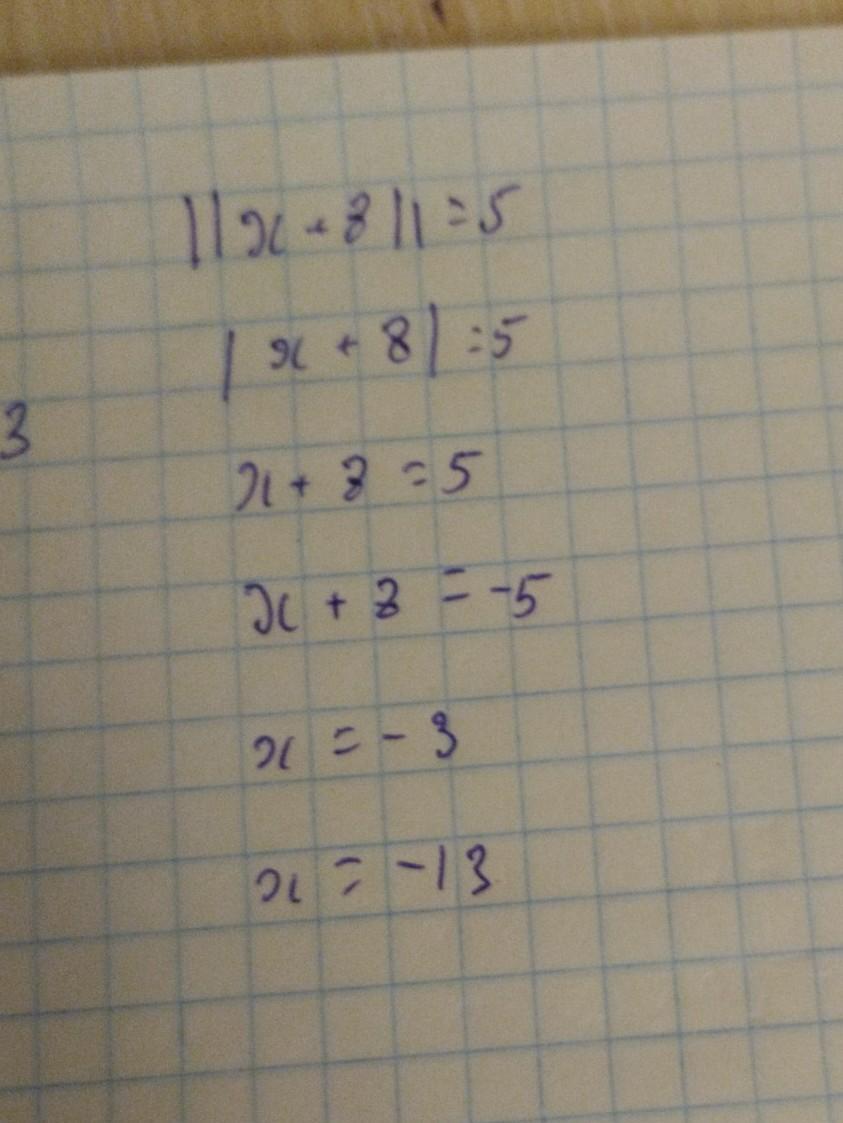 ||x+8||=5
|x+8|=5
3
x+8=5
x+8=-5
x=-3
x=-13